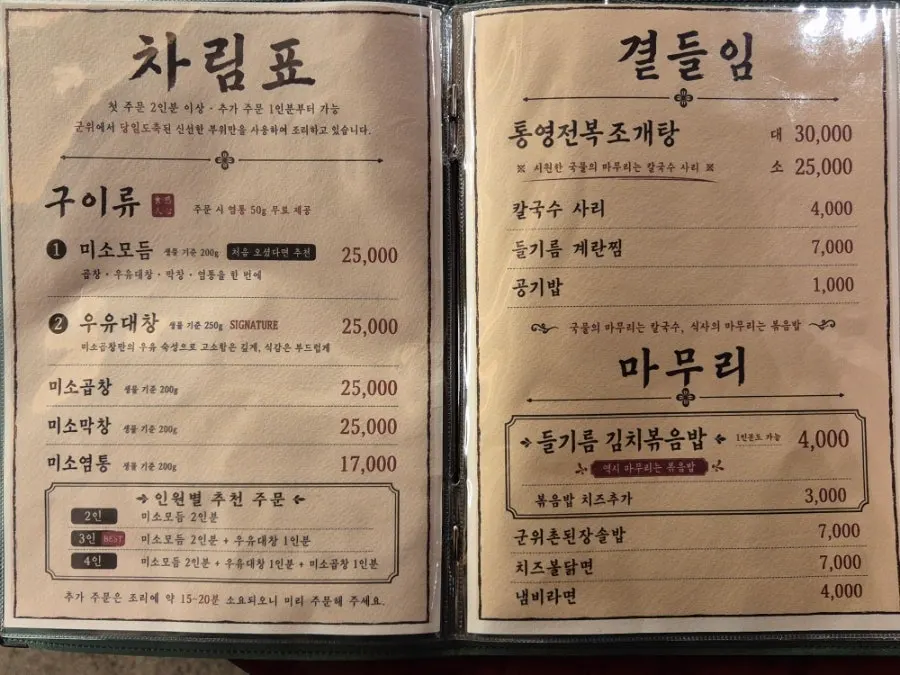 차림표
첫 주문 2인분 이상 · 추가 주문 1인분부터 가능
군위에서 당일도축된 신선한 부위만을 사용하여 조리하고 있습니다.
구이류 주문 시 염통 50g 무료 제공
1 미소모듬 생물 기준 200g 처음 오셨다면 추천 25,000
곱창 · 우유대창 · 막창 · 염통을 한 번에
2 우유대창 생물 기준 250g SIGNATURE 25,000
미소곱창만의 우유 숙성으로 고소함은 깊게, 식감은 부드럽게
미소곱창 생물 기준 200g 25,000
미소막창 생물 기준 200g 25,000
미소염통 생물 기준 200g 17,000
인원별 추천 주문
2인 미소모듬 2인분
3인 BEST 미소모듬 2인분 + 우유대창 1인분
4인 미소모듬 2인분 + 우유대창 1인분 + 미소곱창 1인분
추가 주문은 조리에 약 15~20분 소요되오니 미리 주문해 주세요.
곁들임
통영전복조개탕 대 30,000
※ 시원한 국물의 마무리는 칼국수 사리 ※ 소 25,000
칼국수 사리 4,000
들기름 계란찜 7,000
공기밥 1,000
국물의 마무리는 칼국수, 식사의 마무리는 볶음밥
마무리
들기름 김치볶음밥 1인분도 가능 4,000
역시 마무리는 볶음밥
볶음밥 치즈추가 3,000
군위촌된장술밥 7,000
치즈불닭면 7,000
냄비라면 4,000